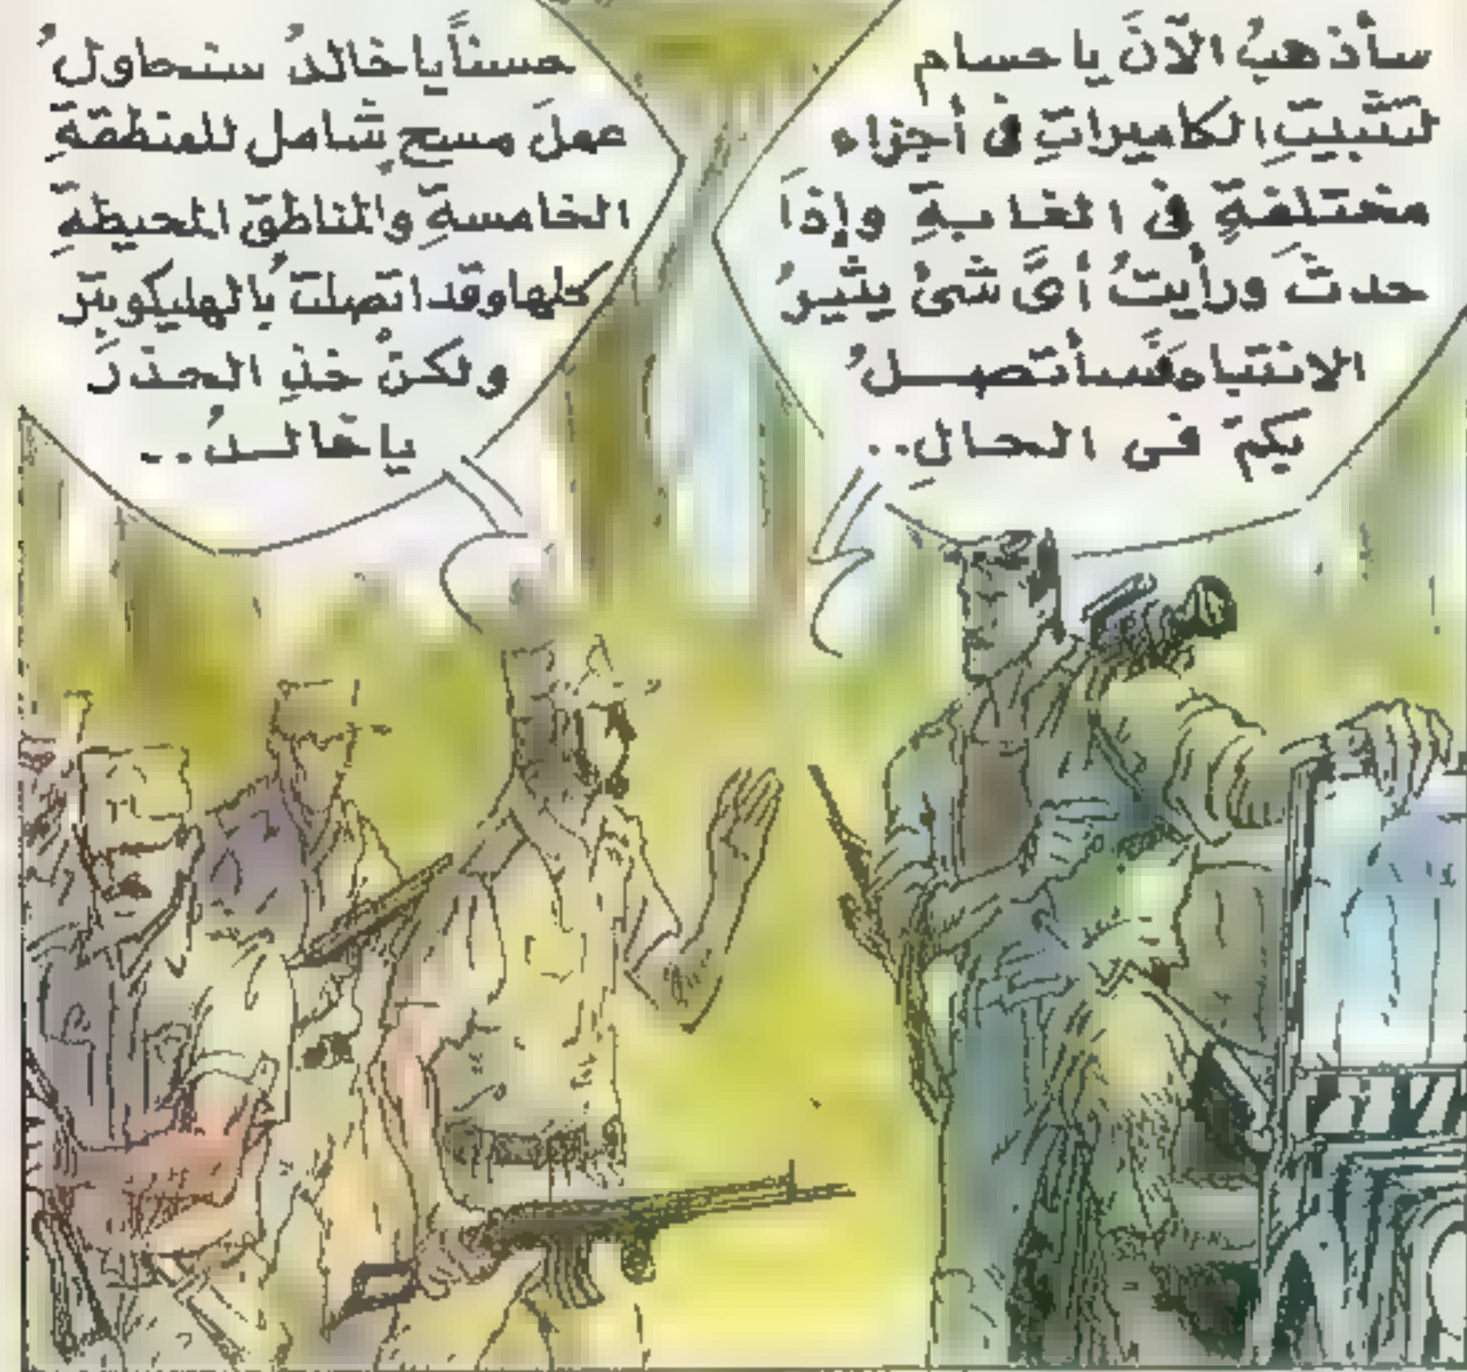 سأذهبُ الآنَ ياحسام
لتثبيتِ الكاميراتِ فى أجزاء
مختلفةٍ فى الغابةِ وإذَا
حدثَ ورأيتُ أىَّ شئ يثيرُ
الانتباهَ فسأتصـلُ
بكمْ فى الحالِ..
حسناً ياخالدُ سنحاولُ
عملَ مسحٍ شامل للمنطقةِ
الخامسةِ والمناطقِ المحيطةِ
كلها وقد اتصلتُ بالهليكوبتر
ولكنْ خذِ الحذرَ
ياخالـدُ..